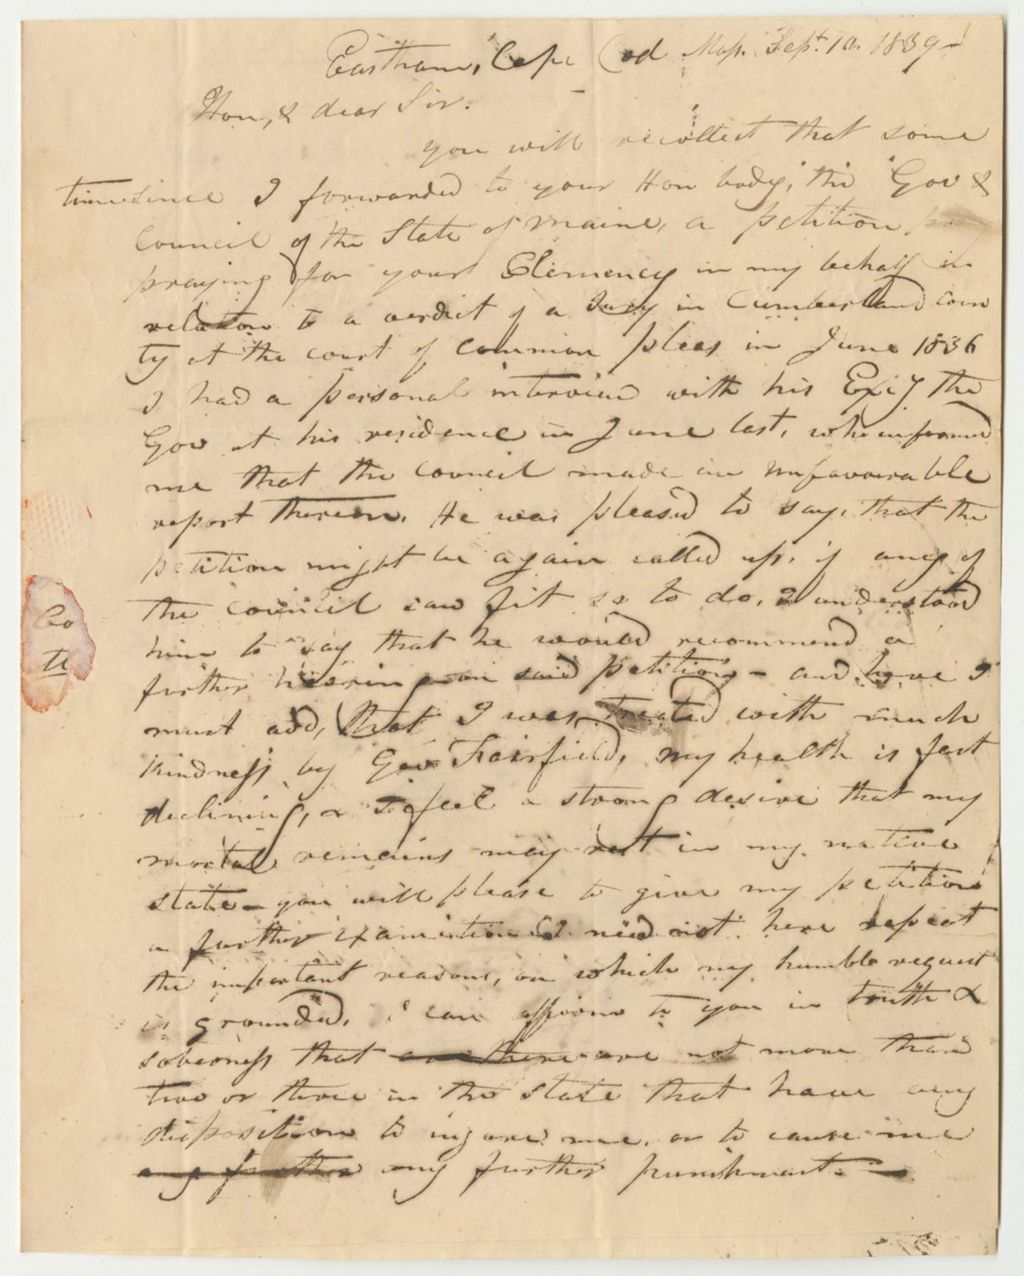 Eastham, Cape Cod Mass. Sept. 10. 1839
Hon, & dear Sir.
you will recollect that some
time since I forwarded to your Hon body, the Gov &
Council of the State of Maine, a petition
praying for your Clemency in my behalf in
relation to a verdict of a Jury in Cumberland coun
ty at the court of common pleas in June 1836
I had a personal interview with his Excy the
Gov at his residence in June last, who informed
me that the council made an unfavourable
report thereon. He was pleased to say, that the
petition might be again called up, if any of
the council saw fit so to do, I understood
him to say that he would recommend a
further hearing on said petition - and here I
must add, that I was treated with much
kindness by Gov Fairfield, my health is fast
declining, & I feel a strong desire that my
mortal remains may rest in my native
state - you will please to give my petition
a further examination I need not here repeat
the important reasons, on which my humble request
is grounded. I can affirm to you in truth &
soberness that there are not more than
two or three in the State that have any
disposition to injure me, or to cause me
any further any further punishment. -
Co
te